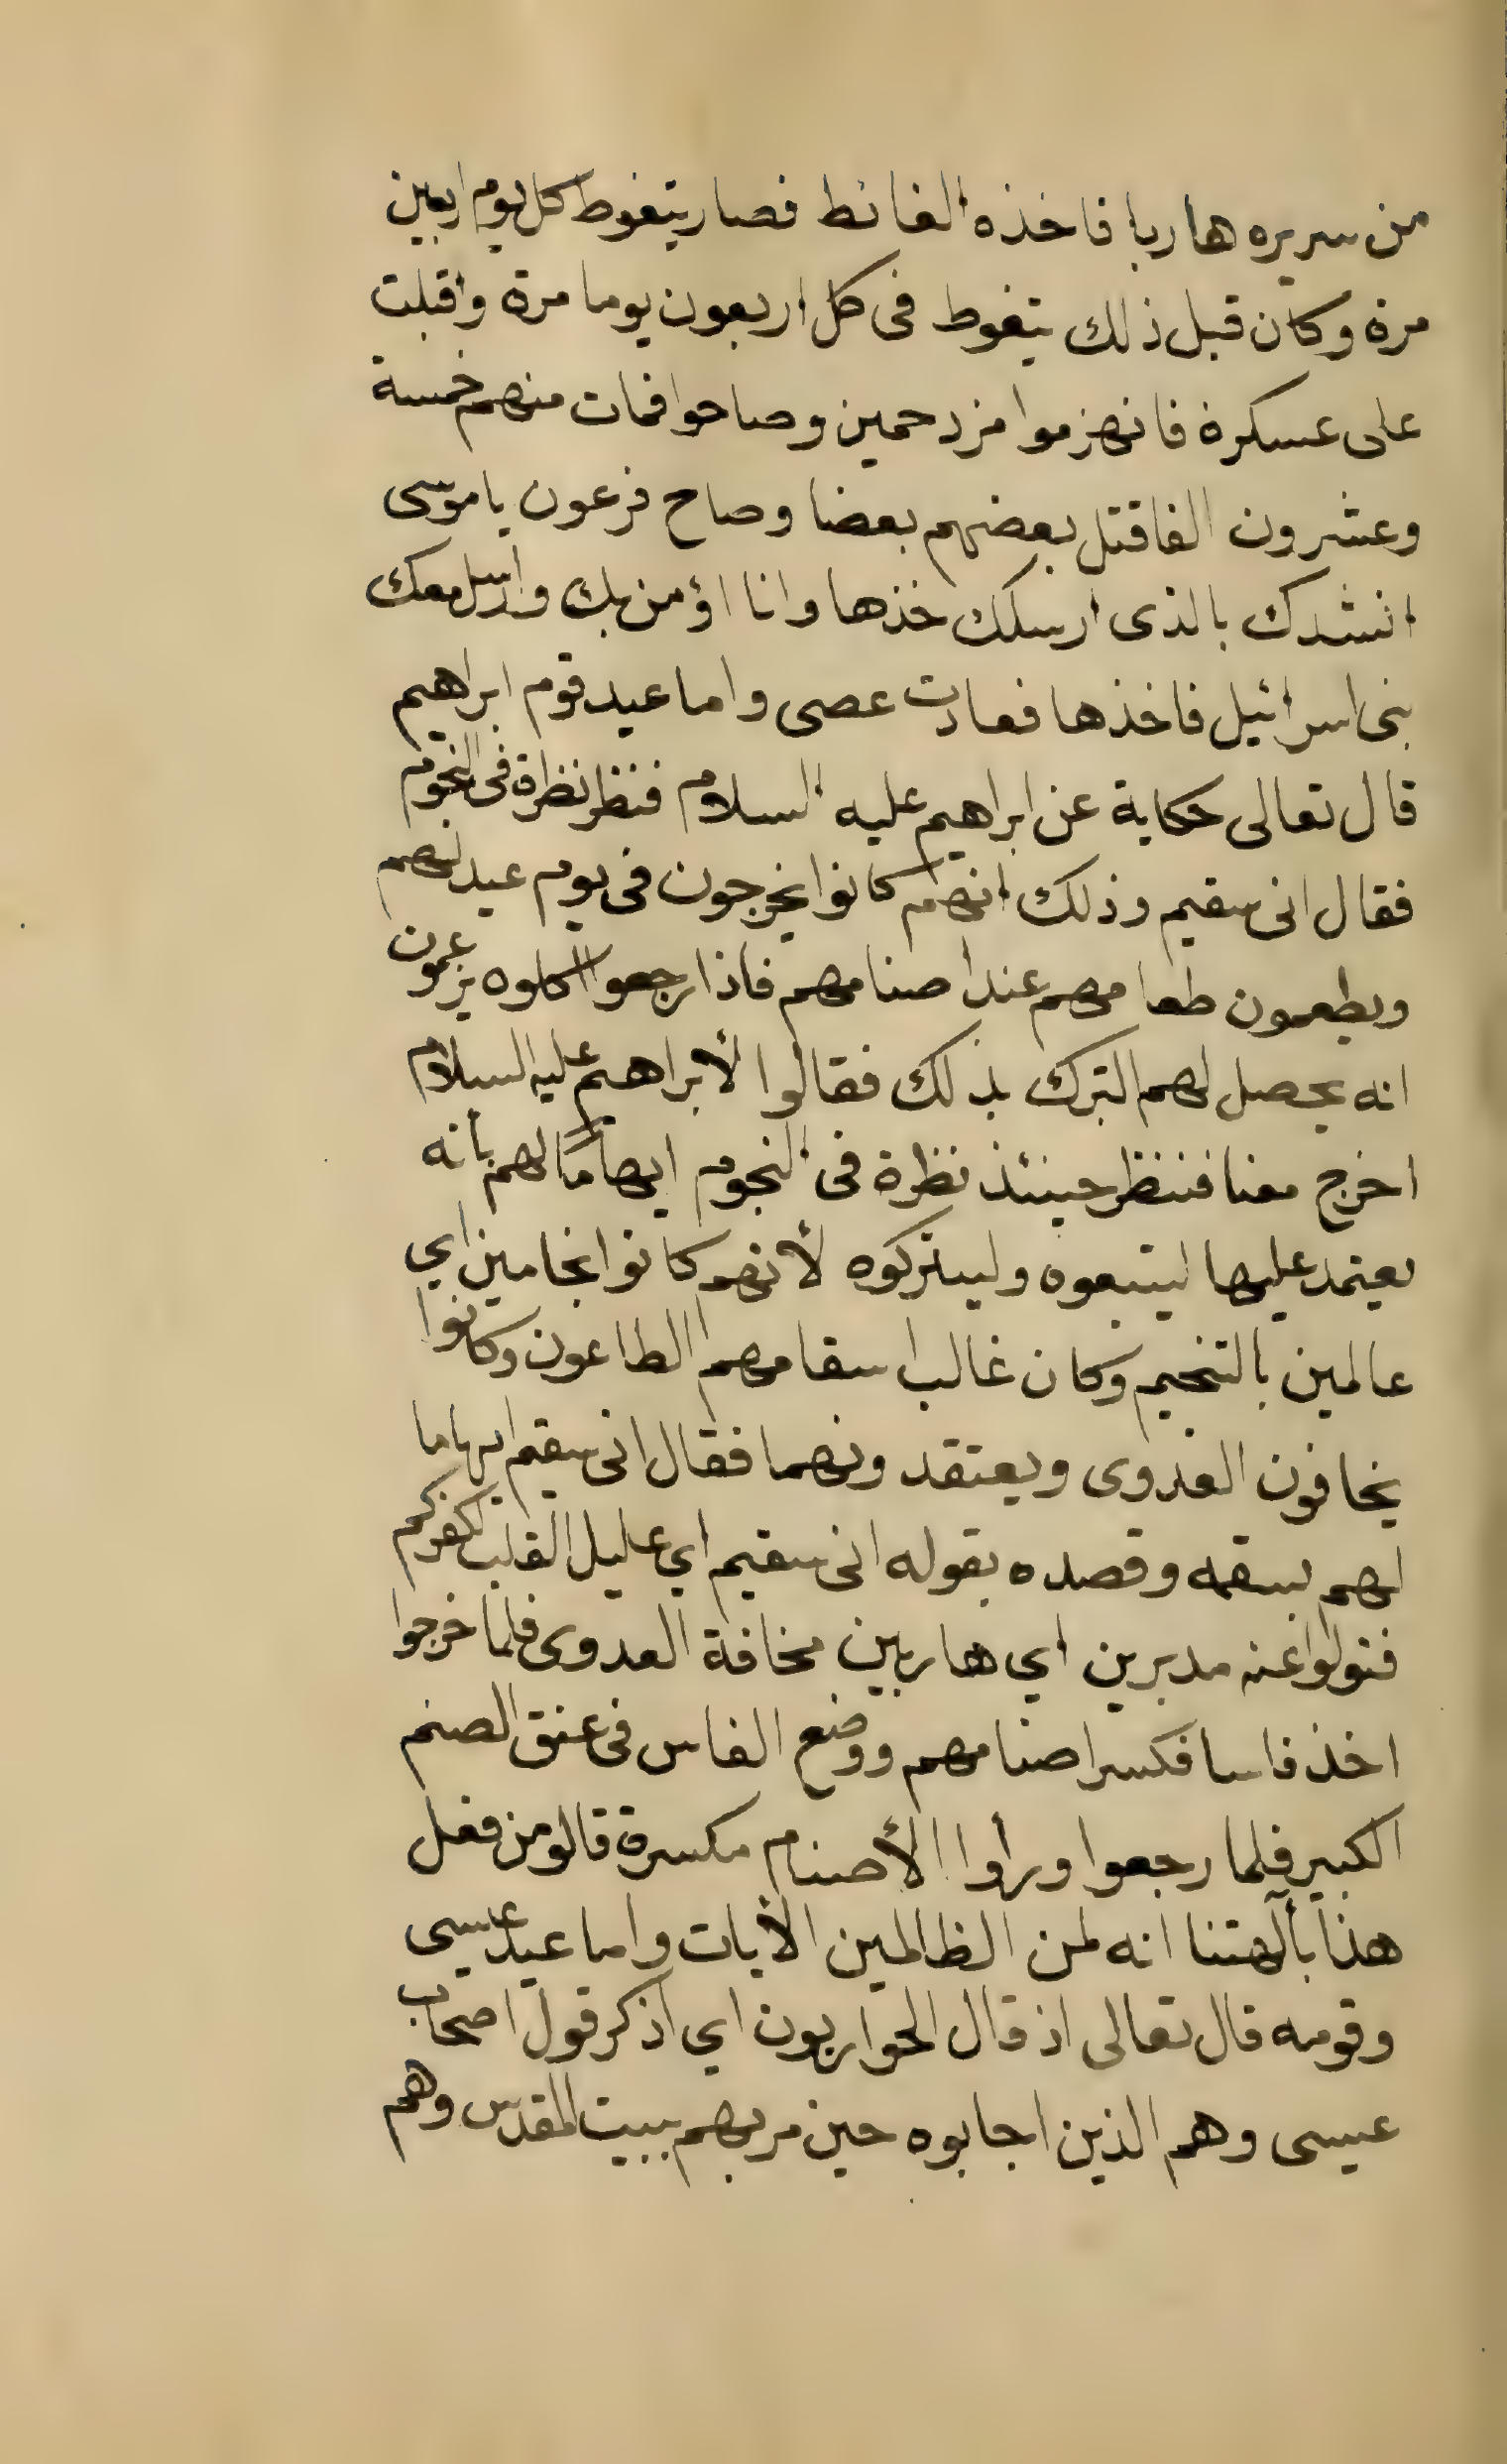 من سريره هاربا فاخذه الغائط فصار يتغوط كل يوم اربعين
مرة وكان قبل ذلك يتغوط فى كل اربعون يوما مرة واقبلت
على عسكرة فانهزموا مزدحمين وصاحوا فمات منهم خمسة
وعشرون الفا قتل بعضهم بعضا وصاح فرعون يا موسى
انشدك بالذى ارسلك خذها وانا اؤمن بك وأرسل معك
بنى اسرائيل فاخذها فعادت عصى واما عيد قوم ابراهيم
قال تعالى حكاية عن ابراهيم عليه السلام فنظر نظرة فى النجوم
فقال انى سقيم وذلك انهم كانوا يخرجون فى يوم عيد لهم
ويطعمون طعامهم عند اصنامهم فاذا رجعوا اكلوه يزعمون
انه يحصل لهم التبرك بذلك فقالوا لأبراهيم عليه السلام
اخرج معنا فننظر حينئذ نظرة فى النجوم ايهامًا لهم بأنه
يعتمد عليها ليتبعوه وليتركوه لأنهم كانوا نجامين اي
عالمين بالتنجيم وكان غالب اسقامهم الطاعون وكانوا
يخافون العدوى ويعتقد ونهما فقال انى سقيم ايهاما
لهم بسقمه وقصده بقوله انى سقيم اي عليل القلب لكفركم
فتولوا عنه مدبرين اي هاربين مخافة العدوى فلما خرجوا
اخذ فاسا فكسر اصنامهم ووضع الفاس فى عنق الصنم
الكبير فلما رجعوا ورأوا الأصنام مكسرة قالو من فعل
هذا بألهتنا انه لمن الظالمين الأيات واما عيد عيسى
وقومه قال تعالى اذ قال الحواريون اي اذكر قول اصحاب
عيسى وهم الذين اجابوه حين مر بهم ببيت المقدس وهم